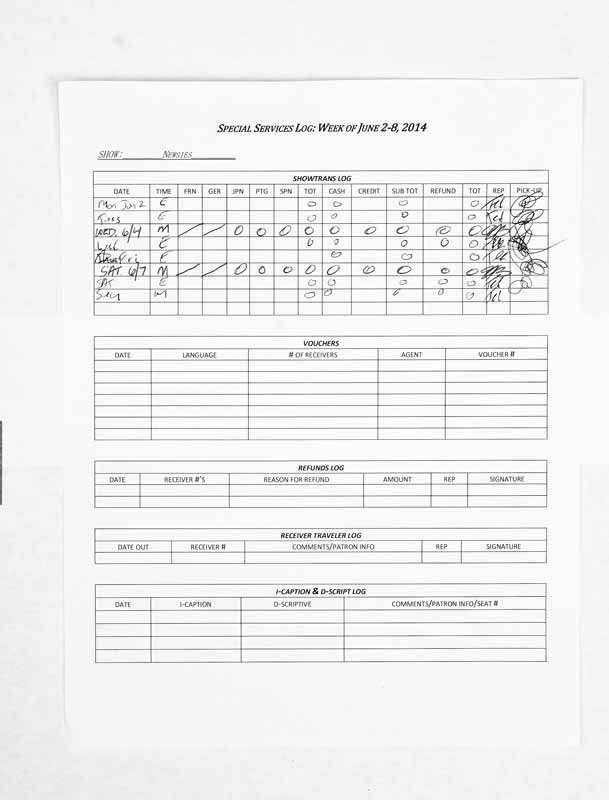 SPECIAL SERVICES LOG: WEEK OF JUNE 2-8, 2014
SHOW: NEWSIES
SHOWTRANS LOG
DATE TIME FRN GER JPN PTG SPN TOT CASH CREDIT SUB TOT REFUND TOT REP PICK-UP
Mon Jun 2 E 0 0 0 0
Tues E 0 0 0 0
WED. 6/4 M / / 0 0 0 0 0 0 0 0 0
Wed E 0 0 0 0 0
Fri E 0 0 0
SAT 6/7 M / / 0 0 0 0 0 0 0 0 0
SAT E 0 0 0 0 0
Sun M 0 0 0 0 0
VOUCHERS
DATE LANGUAGE # OF RECEIVERS AGENT VOUCHER #
REFUNDS LOG
DATE RECEIVER #'S REASON FOR REFUND AMOUNT REP SIGNATURE
RECEIVER TRAVELER LOG
DATE OUT RECEIVER # COMMENTS/PATRON INFO REP SIGNATURE
I-CAPTION & D-SCRIPT LOG
DATE I-CAPTION D-SCRIPTIVE COMMENTS/PATRON INFO/SEAT #